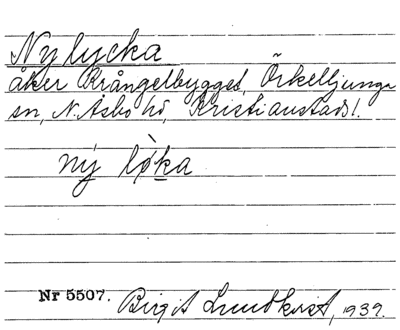 Nylycka
åker Krångelbygget, Örkelljunga
sn, N. Åsbo hd, Kristianstads l.
ný lø̀ka
Nr 5507. Birgit Lundkvist, 1939.